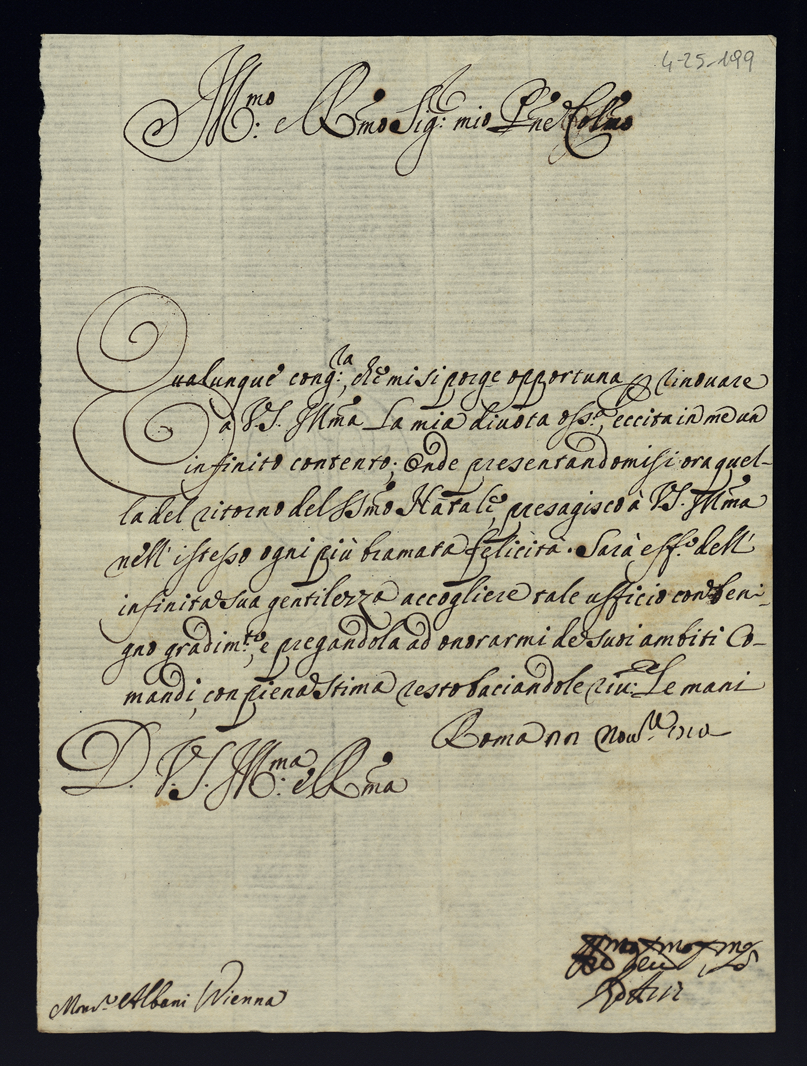 4-25-199
Ill:mo e R:mo Sig: mio P'ne Col:mo
Qualunque cong:la, che mi si porge opportuna p rinovare
à V.S. Ill:ma La mia divota oss:a, eccita in me un
infinito contento; Onde presentandomisi ora quel-
la del ritorno del SS:mo Natale, presagisco à V.S. Ill:ma
nell' istesso ogni più bramata felicità. Sarà eff:o dell'
infinita sua gentilezza accogliere tale ufficio con beni-
gno gradim:to, e pregandola ad onorarmi de suoi ambiti Co-
mandi, con piena stima resto baciandole riv: Le mani
Roma Nov:
D. V.S. Ill:ma e R:ma
Mons:r Albani Vienna